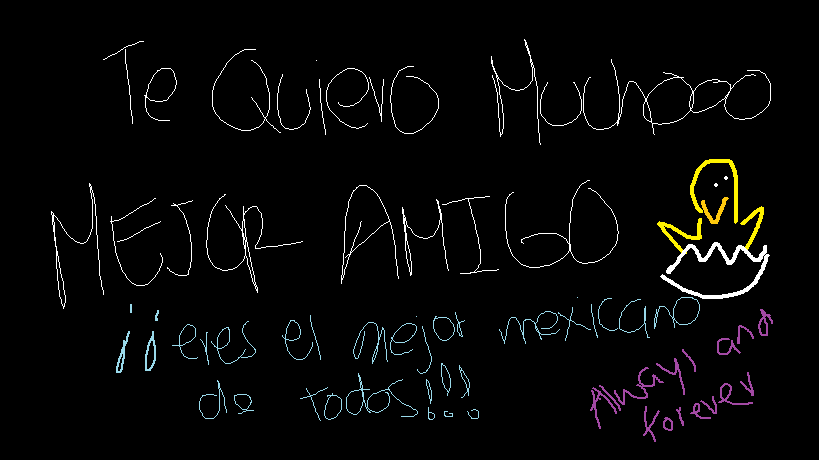 Te Quiero Muchoooo
MEJOR AMIGO
¡¡eres el mejor mexicano
de todos!!!
Always and
forever